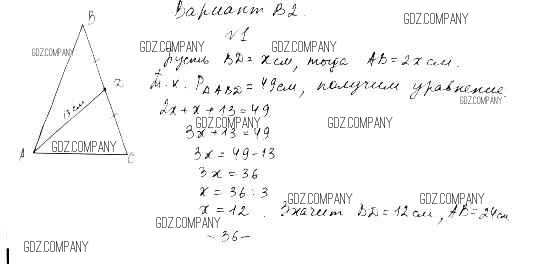 Вариант В2.
B
GDZ.COMPANY
№1
GDZ.COMPANY
GDZ.COMPANY
GDZ.COMPANY
Пусть BD = x см, тогда AB = 2x см.
D
Т. к. P△ABD = 49 см, получим уравнение.
GDZ.COMPANY
13 см
2x + x + 13 = 49
GDZ.COMPANY
GDZ.COMPANY
3x + 13 = 49
GDZ.COMPANY
A
C
3x = 49 - 13
3x = 36
x = 36 : 3
GDZ.COMPANY
GDZ.COMPANY
x = 12. Значит BD = 12 см, AB = 24 см
GDZ.COMPANY
- 36 -
GDZ.COMPANY